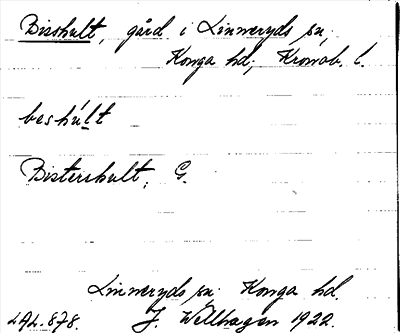 Bisshult, gård i Linneryds sn,
Konga hd, Kronob. l.
beshúlt
Bistershult, G.
Linneryds sn. Konga hd.
LAL.878. J. Wellhagen 1922.